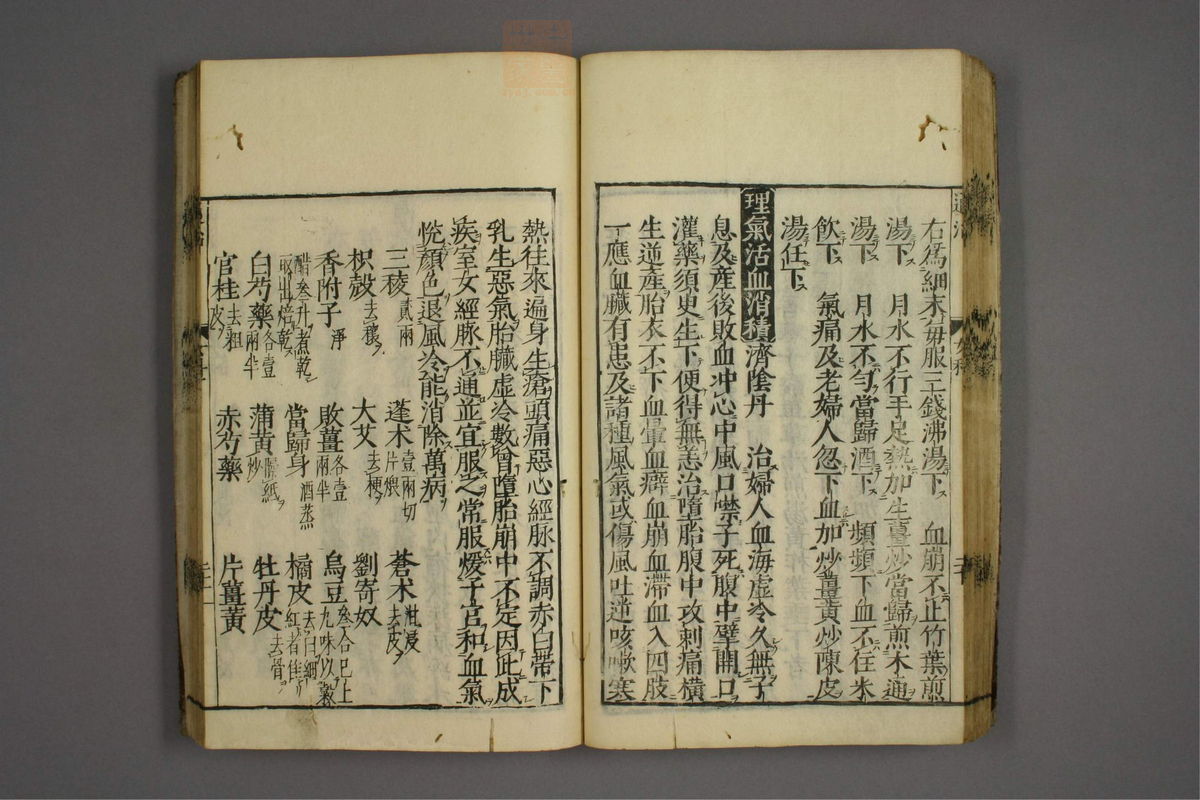 右爲細末每服三錢沸湯下　血崩不止竹葉煎
湯下　月水不行手足熱加生薑炒當歸煎木通
湯下　月水不勻當歸酒下　頻頻下血不住米
飲下　氣痛及老婦人忽下血加炒薑黃炒陳皮
湯任下
理氣活血消積濟陰丹　治婦人血海虛冷久無子
息及產後敗血冲心中風口噤子死腹中擘開口
灌藥須臾生下便得無恙治墮胎腹中攻刺痛橫
生逆產胎衣不下血暈血癖血崩血滯血入四肢
一應血臟有患及諸種風氣或傷風吐逆咳嗽寒
熱往來遍身生瘡頭痛惡心經脉不調赤白帶下
乳生惡氣胎臟虛冷數曾墮胎崩中不定因此成
疾室女經脉不通並宜服之常服煖子宮和血氣
悅顏色退風冷能消除萬病
三稜貳兩　蓬木壹兩切片煨　蒼术泔浸去皮
枳殼去穰　大艾去梗　劉寄奴
香附子淨醋叄升煮乾取出焙乾　敗薑各壹兩半　烏豆叄合已上九味以穀
當歸身酒蒸　橘皮去白細紅者佳
白芍藥各壹兩半　蒲黃隔紙炒　牡丹皮去骨
官桂去粗皮　赤芍藥　片薑黃